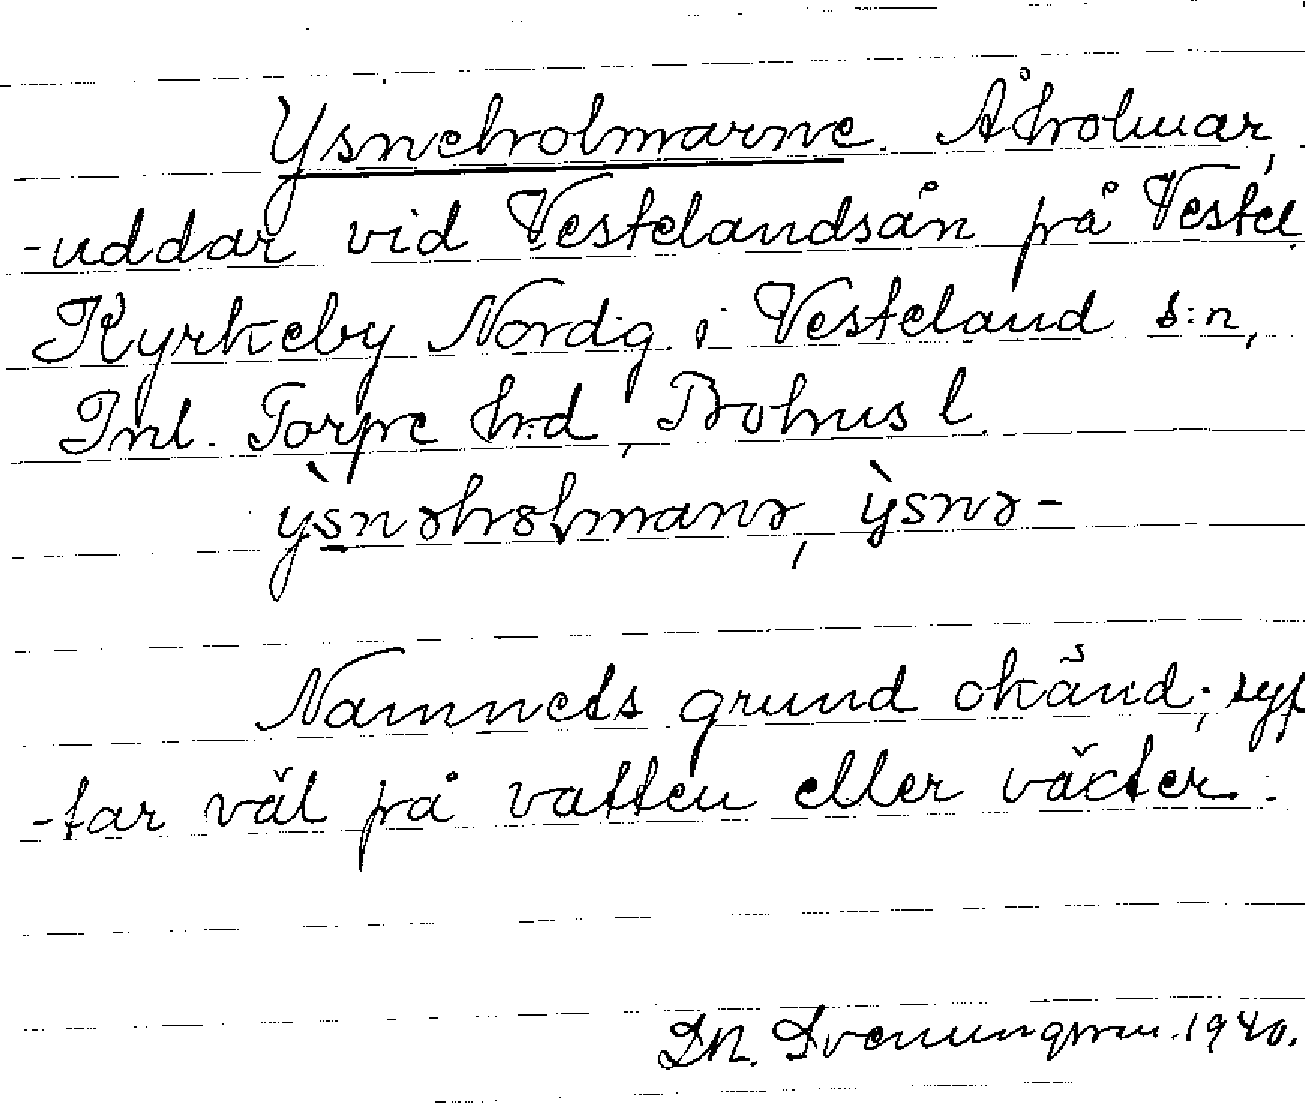 Ysneholmarne. Åholmar,
-uddar vid Vestelandsån på Vestel.
Kyrkeby Nordg. i Vesteland s:n,
Inl. Torpe h:d, Bohus l.
ỳsnəhoɫmanə, ỳsnə-
Namnets grund okänd; syf
-tar väl på vatten eller växter.
Svenungsson 1940.